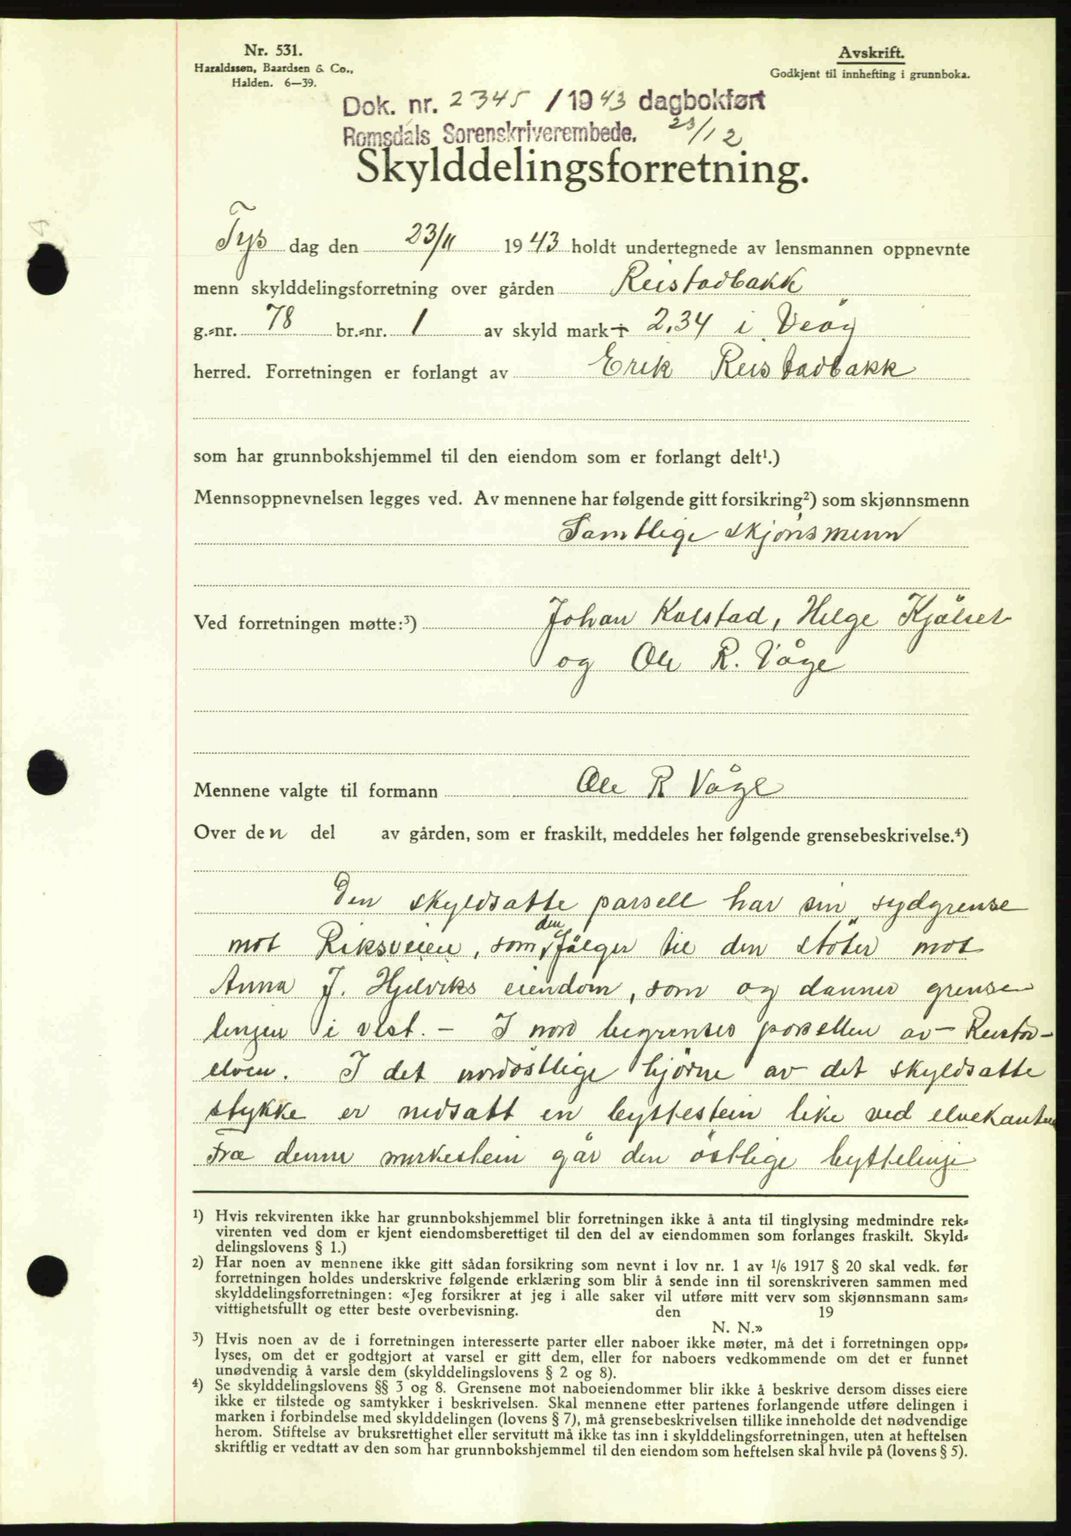 Nr. 531.
Haraldssøn, Baardsen & Co.,
Halden. 6—39.
Avskrift.
Godkjent til innhefting i grunnboka.
Dok. nr. 2345 / 1943 dagbokført
Romsdals Sorenskriverembede. 23/12
Skylddelingsforretning.
Tys dag den 23/11 1943 holdt undertegnede av lensmannen oppnevnte
menn skylddelingsforretning over gården Reistadbakk
g.=nr. 78 br.=nr. 1 av skyld mark 2,34 i Veøy
herred. Forretningen er forlangt av Erik Reistadbakk
som har grunnbokshjemmel til den eiendom som er forlangt delt¹.)
Mennsoppnevnelsen legges ved. Av mennene har følgende gitt forsikring²) som skjønnsmenn
Samtlige skjönsmenn
Ved forretningen møtte:³) Johan Kolstad, Helge Kjölset
og Ole R. Våge
Mennene valgte til formann Ole R Våge
Over den del av gården, som er fraskilt, meddeles her følgende grensebeskrivelse.⁴)
Den skyldsatte parsell har sin sydgrense
mot Riksveien, som den fölger til den stöter mot
Anna J. Hjelviks eiendom, som og danner grense-
linjen i vest. — I nord begrenses parsellen av Reistad-
elven. I det nordöstlige hjörne av det skyldsatte
stykke er nedsatt en byttestein like ved elvekanten
Fra denne merkestein går den östlige byttelinje
¹) Hvis rekvirenten ikke har grunnbokshjemmel blir forretningen ikke å anta til tinglysing medmindre rek=
virenten ved dom er kjent eiendomsberettiget til den del av eiendommen som forlanges fraskilt. Skyld=
delingslovens § 1.)
²) Har noen av mennene ikke gitt sådan forsikring som nevnt i lov nr. 1 av 1/6 1917 § 20 skal vedk. før
forretningen holdes underskrive følgende erklæring som blir å sende inn til sorenskriveren sammen med
skylddelingsforretningen: «Jeg forsikrer at jeg i alle saker vil utføre mitt verv som skjønnsmann sam=
vittighetsfullt og etter beste overbevisning. den 19
N. N.»
³) Hvis noen av de i forretningen interesserte parter eller naboer ikke møter, må det i forretningen opp=
lyses, om det er godtgjort at varsel er gitt dem, eller for naboers vedkommende om det er funnet
unødvendig å varsle dem (skylddelingslovens § 2 og 8).
⁴) Se skylddelingslovens §§ 3 og 8. Grensene mot naboeiendommer blir ikke å beskrive dersom disses eiere
ikke er tilstede og samtykker i beskrivelsen. Skal mennene etter partenes forlangende utføre delingen i
marken i forbindelse med skylddelingen (lovens § 7), må grensebeskrivelsen tillike inneholde det nødvendige
herom. Stiftelse av bruksrettighet eller servitutt må ikke tas inn i skylddelingsforretningen, uten at heftelsen
skriftlig er vedtatt av den som har grunnbokshjemmel til den eiendom som heftelsen skal hvile på (lovens § 5).